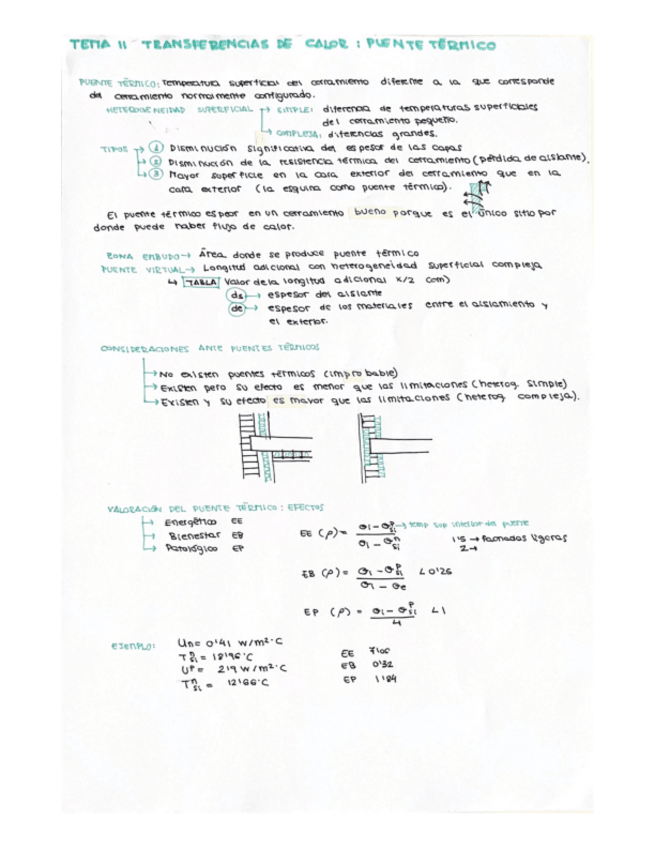 TEMA 11 TRANSFERENCIAS DE CALOR: PUENTE TÉRMICO
PUENTE TÉRMICO: temperatura superficial del cerramiento diferente a la que corresponde
del cerramiento normalmente configurado.
HETEROGENEIDAD SUPERFICIAL → SIMPLE: diferencia de temperaturas superficiales
del cerramiento pequeño.
→ COMPLEJA: diferencias grandes.
TIPOS → 1 Disminución significativa del espesor de las capas
→ 2 Disminución de la resistencia térmica del cerramiento (pérdida de aislante).
→ 3 Mayor superficie en la cara exterior del cerramiento que en la
cara exterior (la esquina como puente térmico).
El puente térmico es peor en un cerramiento bueno porque es el único sitio por
donde puede haber flujo de calor.
ZONA EMBUDO → Área donde se produce puente térmico
PUENTE VIRTUAL → Longitud adicional con heterogeneidad superficial compleja
↳ TABLA Valor de la longitud adicional x/2 (cm)
→ espesor del aislante
de → espesor de los materiales entre el aislamiento y
el exterior.
CONSIDERACIONES ANTE PUENTES TÉRMICOS
→ No existen puentes térmicos (improbable)
→ Existen pero su efecto es menor que las limitaciones (heterog. simple)
→ Existen y su efecto es mayor que las limitaciones (heterog. compleja).
VALORACIÓN DEL PUENTE TÉRMICO: EFECTOS
→ Energético EE
→ Bienestar EB
→ Patológico EP
EE (P) = θi - θsi^p / θi - θsi^n → temp sup interior del puente
1'5 → fachadas ligeras
2 →
EB (P) = θi - θsi^p / θi - θe < 0'25
EP (P) = θi - θsi^p / 4 < 1
EJEMPLO: Un = 0'41 W/m²·C
Tsi^n = 18'96·C
Up = 2'19 W/m²·C
Tsi^n = 12'66·C
EE 7'06
EB 0'32
EP 1'84